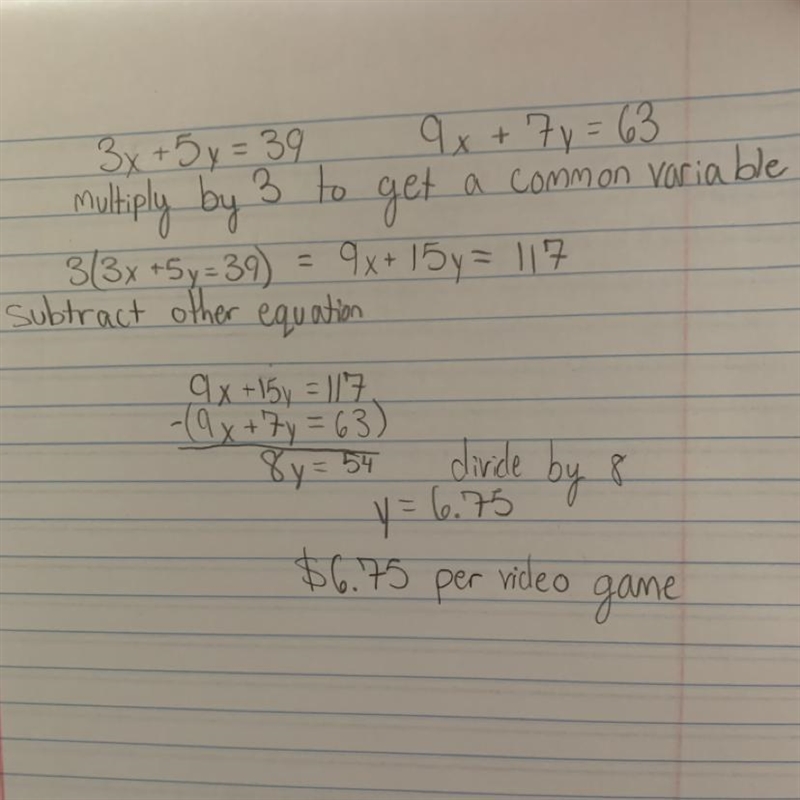 3x + 5y = 39 9x + 7y = 63
multiply by 3 to get a common variable
3(3x + 5y = 39) = 9x + 15y = 117
subtract other equation
9x + 15y = 117
-(9x + 7y = 63)
8y = 54 divide by 8
y = 6.75
$6.75 per video game